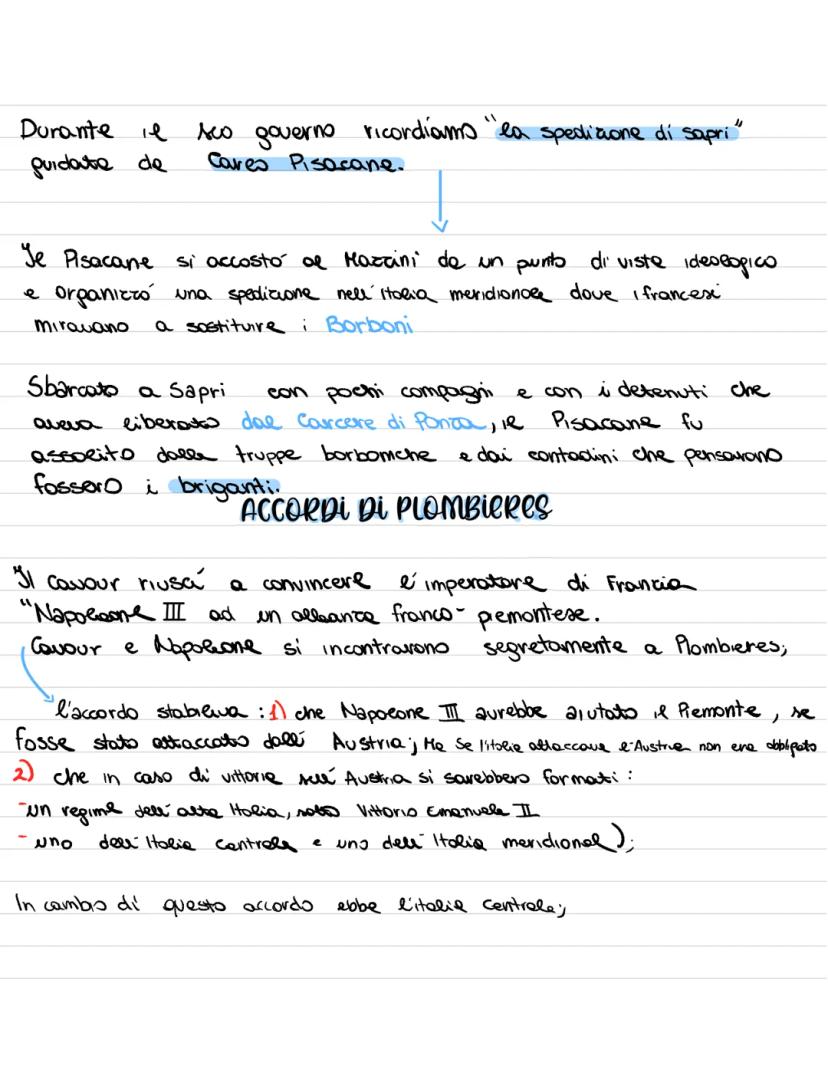 Durante il suo governo ricordiamo "la spedizione di sapri"
guidata da Carlo Pisacane.
Il Pisacane si accostó al Mazzini da un punto di vista ideologico
e organizzó una spedizione nell'italia meridionale dove i francesi
miravano a sostituire i Borboni
Sbarcato a Sapri con pochi compagni e con i detenuti che
aveva liberato dal Carcere di Ponza, il Pisacane fu
assalito dalle truppe borboniche e dai contadini che pensavano
fossero i briganti.
ACCORDI DI PLOMBIERES
Il cavour riuscí a convincere l'imperatore di Francia
"Napoleone III ad un alleanza franco-piemontese.
Cavour e Napoleone si incontrarono segretamente a Plombieres;
l'accordo stabiliva: 1) che Napoleone III avrebbe aiutato il Piemonte, se
fosse stato attaccato dall'Austria; Ma se l'italia attaccava l'Austria non era obbligato
2) che in caso di vittoria sull'Austria si sarebbero formati:
-un regime dell'alta Italia, sotto Vittorio Emanuele II
- uno dell'Italia centrale e uno dell'Italia meridional);
In cambio di questo accordo ebbe l'italia centrale;